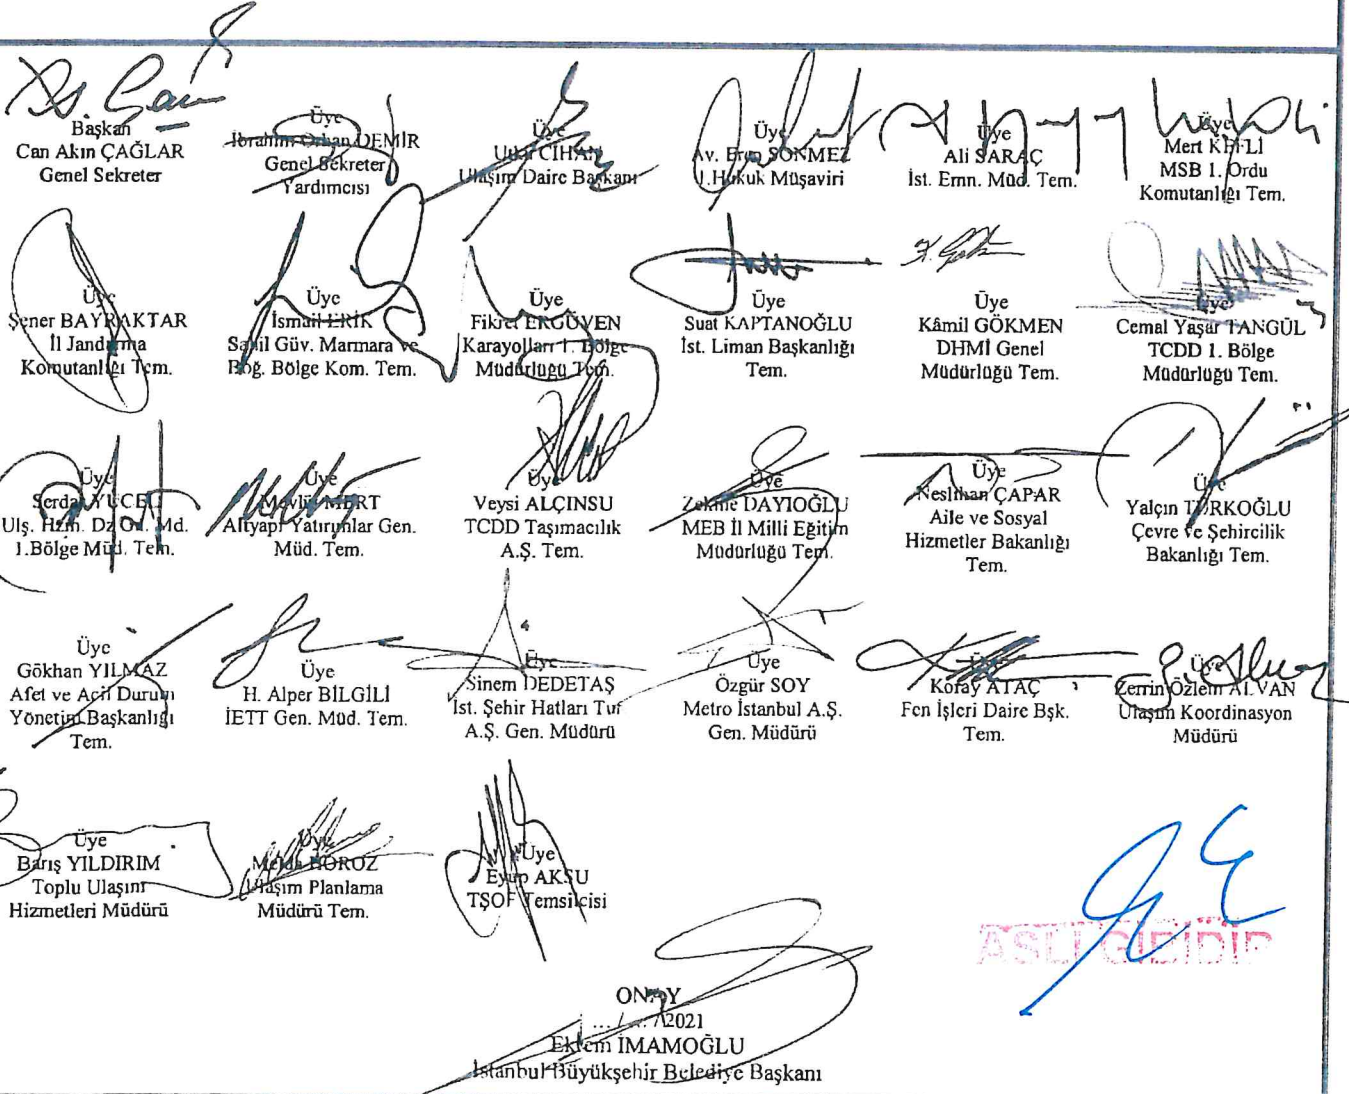 Başkan
Can Akın ÇAĞLAR
Genel Sekreter
Üye
İbrahim Orhan DEMİR
Genel Sekreter
Yardımcısı
Üye
Utku CİHAN
Ulaşım Daire Başkanı
Üye
Av. Eren SÖNMEZ
1.Hukuk Müşaviri
Üye
Ali SARAÇ
İst. Emn. Müd. Tem.
Üye
Mert
MSB 1. Ordu
Komutanlığı Tem.
Üye
Şener BAYRAKTAR
İl Jandarma
Komutanlığı Tem.
Üye
İsmail ERİK
Sahil Güv. Marmara ve
Boğ. Bölge Kom. Tem.
Üye
Fikret ERGÜVEN
Karayolları 1. Bölge
Müdürlüğü Tem.
Üye
Suat KAPTANOĞLU
İst. Liman Başkanlığı
Tem.
Üye
Kâmil GÖKMEN
DHMİ Genel
Müdürlüğü Tem.
Üye
Cemal Yaşar TANGÜL
TCDD 1. Bölge
Müdürlüğü Tem.
Üye
Serdar YÜCEL
Ulş. Hzm. Dz. Md.
1.Bölge Müd. Tem.
Üye
Mevlüt MERT
Altyapı Yatırımlar Gen.
Müd. Tem.
Üye
Veysi ALÇINSU
TCDD Taşımacılık
A.Ş. Tem.
Üye
DAYIOĞLU
MEB İl Milli Eğitim
Müdürlüğü Tem.
Üye
Neslihan ÇAPAR
Aile ve Sosyal
Hizmetler Bakanlığı
Tem.
Üye
Yalçın TÜRKOĞLU
Çevre ve Şehircilik
Bakanlığı Tem.
Üye
Gökhan YILMAZ
Afet ve Acil Durum
Yönetim Başkanlığı
Tem.
Üye
H. Alper BİLGİLİ
İETT Gen. Müd. Tem.
Üye
Sinem DEDETAŞ
İst. Şehir Hatları Tur
A.Ş. Gen. Müdürü
Üye
Özgür SOY
Metro İstanbul A.Ş.
Gen. Müdürü
Üye
Koray ATAÇ
Fen İşleri Daire Bşk.
Tem.
Üye
Zerrin Özlem ALVAN
Ulaşım Koordinasyon
Müdürü
Üye
Barış YILDIRIM
Toplu Ulaşım
Hizmetleri Müdürü
Üye
Melda HOROZ
Ulaşım Planlama
Müdürü Tem.
Üye
Eyüp AKSU
TŞOF Temsilcisi
ASLI GİBİDİR
ONAY
... / ... /2021
Ekrem İMAMOĞLU
İstanbul Büyükşehir Belediye Başkanı